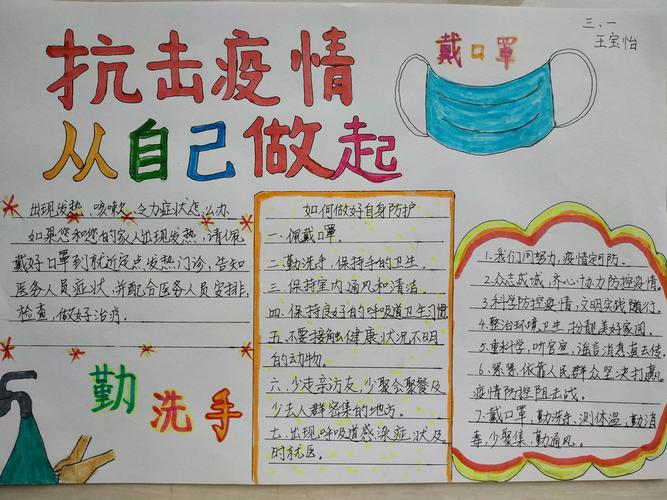 抗击疫情
从自己做起
戴口罩
三、一
王宝怡
出现发热、咳嗽、乏力症状怎么办
如果您和您的家人出现发热,请佩
戴好口罩到就近定点发热门诊,告知
医务人员症状,并配合医务人员安排,
检查,做好治疗。
勤
洗手
如何做好自身防护
一、佩戴口罩。
二、勤洗手,保持手的卫生。
三、保持室内通风和清洁。
四、保持良好的呼吸道卫生习惯
五、不要接触健康状况不明
的动物。
六、少走亲访友,少聚会聚餐及
少去人群密集的地方。
七、出现呼吸道感染症状及
时就医。
1.我们同努力,疫情定可防。
2.众志成城,齐心协力防控疫情。
3.科学防控疫情,文明实践随行。
4.整治环境卫生,扮靓美好家园。
5.重科学,听官宣,谣言消息莫去传。
6.紧紧依靠人民群众坚决打赢
疫情防控阻击战。
7.戴口罩,勤洗手、测体温,勤消
毒,少聚集、勤通风。